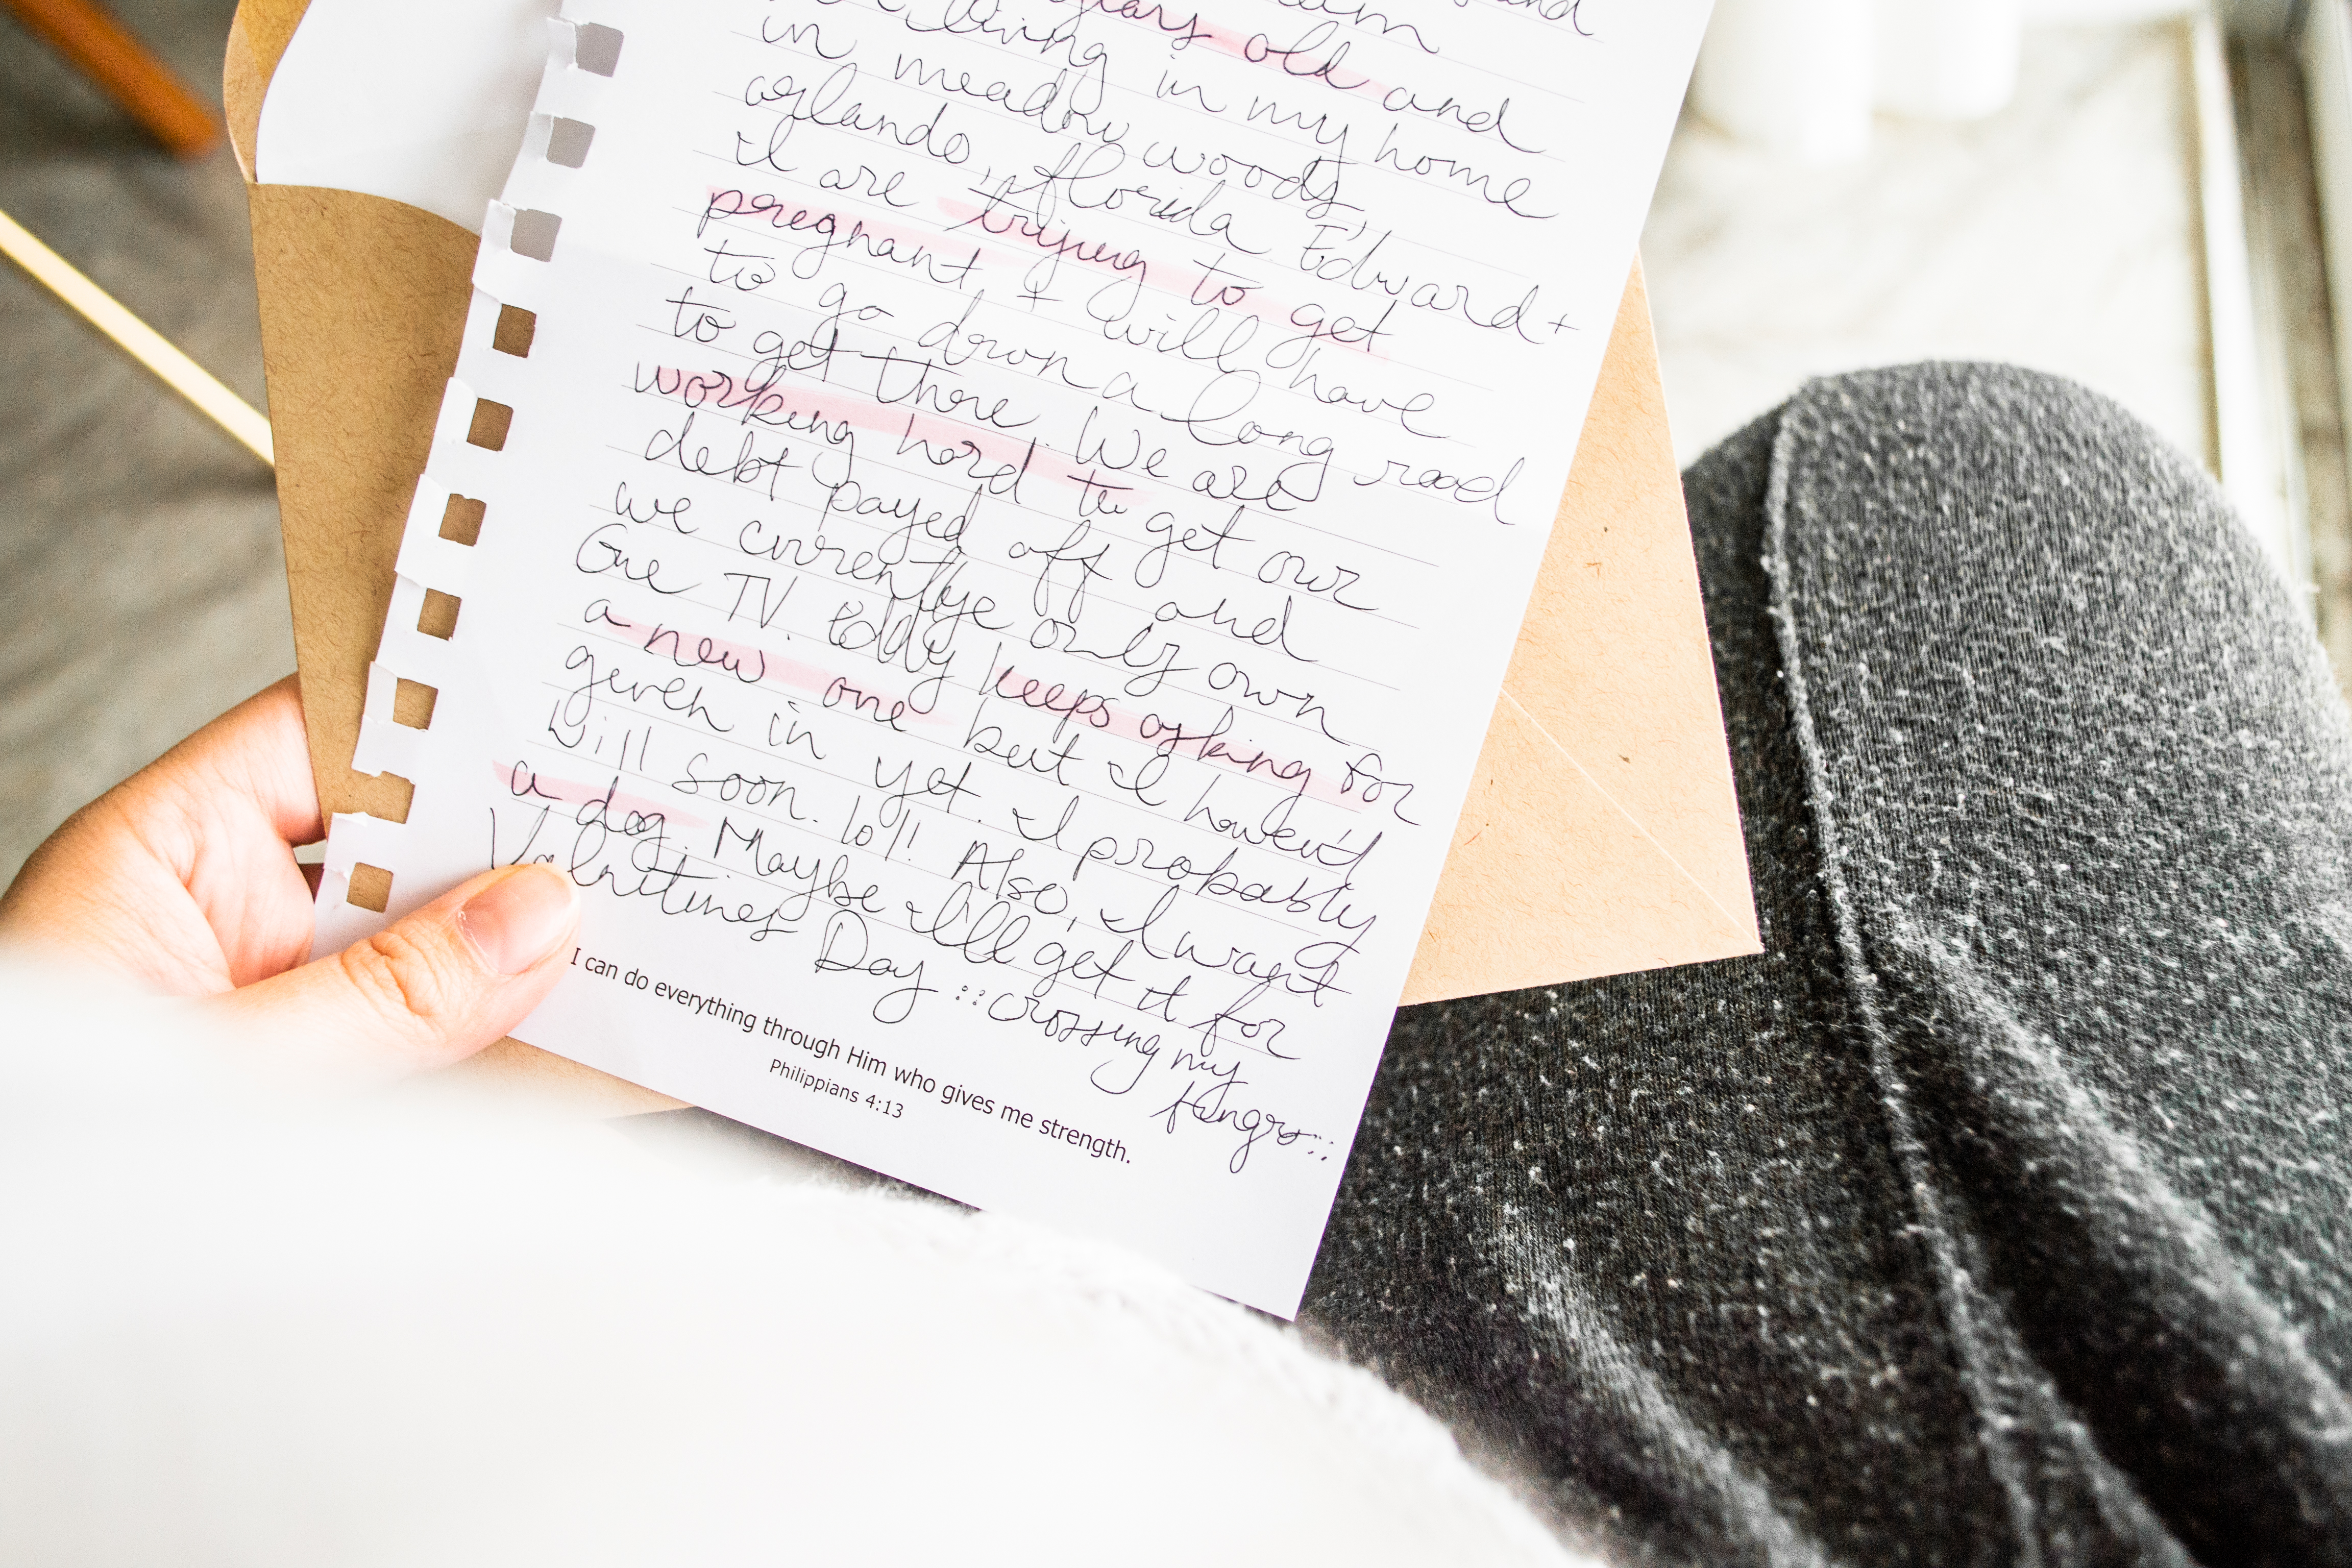 and
years old and
living in my home
in meadow woods,
orlando, florida Edward +
I are trying to get
pregnant + will have
to go down a long road
to get there. We are
working hard to get our
debt payed off and
we currentlye only own
One TV. Eddy keeps asking for
a new one but I haven't
given in yet. I probably
will soon. lol! Also, I want
a dog. Maybe I'll get it for
Valentines Day ::crossing my
fingrs::
I can do everything through Him who gives me strength.
Philippians 4:13